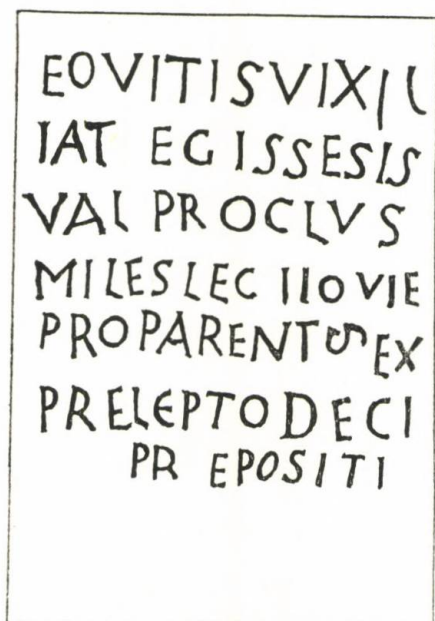 EOVITISVIXIL
IAT EGISSESIS
VAL PROCLVS
MILESLEC IIOVIE
PROPARENTVS EX
PRELEPTODECI
PR EPOSITI